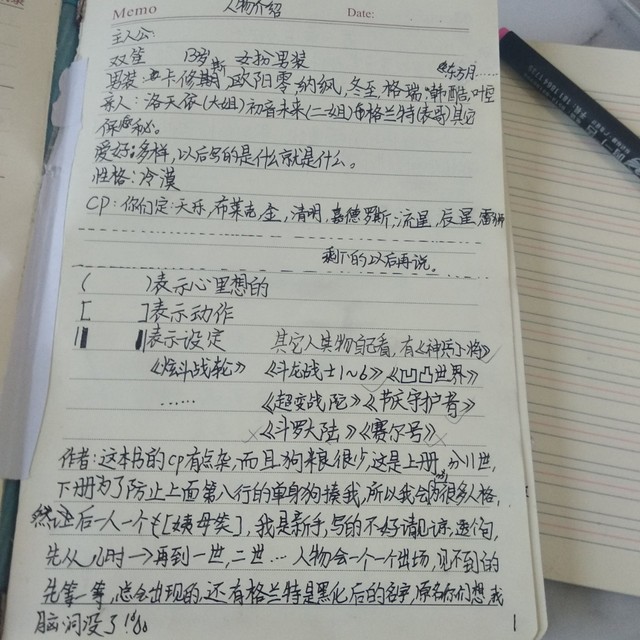 Memo 人物介绍 Date:
主人公:
双笙 13岁 女扮男装
男装: 卡修斯, 欧阳零, 纳纨, 冬至, 格瑞, 韩酷, 叶
亲人: 洛天依(大姐) 初音未来(二姐) 格兰特(表哥) 其它
保密
爱好: 多样, 以后写的是什么就是什么。
性格: 冷漠
CP: 你们定: 天乐, 布莱克, 金, 清明, 嘉德罗斯, 流星, 辰星, 雷狮
剩下的以后再说。
( )表示心里想的
[ ]表示动作
表示设定 其它人其物自己看, 有《神兵小将》
《炫斗战轮》《斗龙战士1~6》《凹凸世界》
...... 《超变战陀》《节庆守护者》
《斗罗大陆》《赛尔号》
作者: 这本书的cp有点杂, 而且狗粮很少, 这是上册, 分11世,
下册为了防止上面第八行的单身狗揍我, 所以我会分为很多人格,
然后一人一个[姨母笑], 我是新手, 写的不好请见谅, 透个句,
先从儿时→再到一世, 二世… 人物会一个一个出场, 见不到的
先等一等, 总会出现的, 还有格兰特是黑化后的名字, 原名你们想, 我
脑洞没了!
1